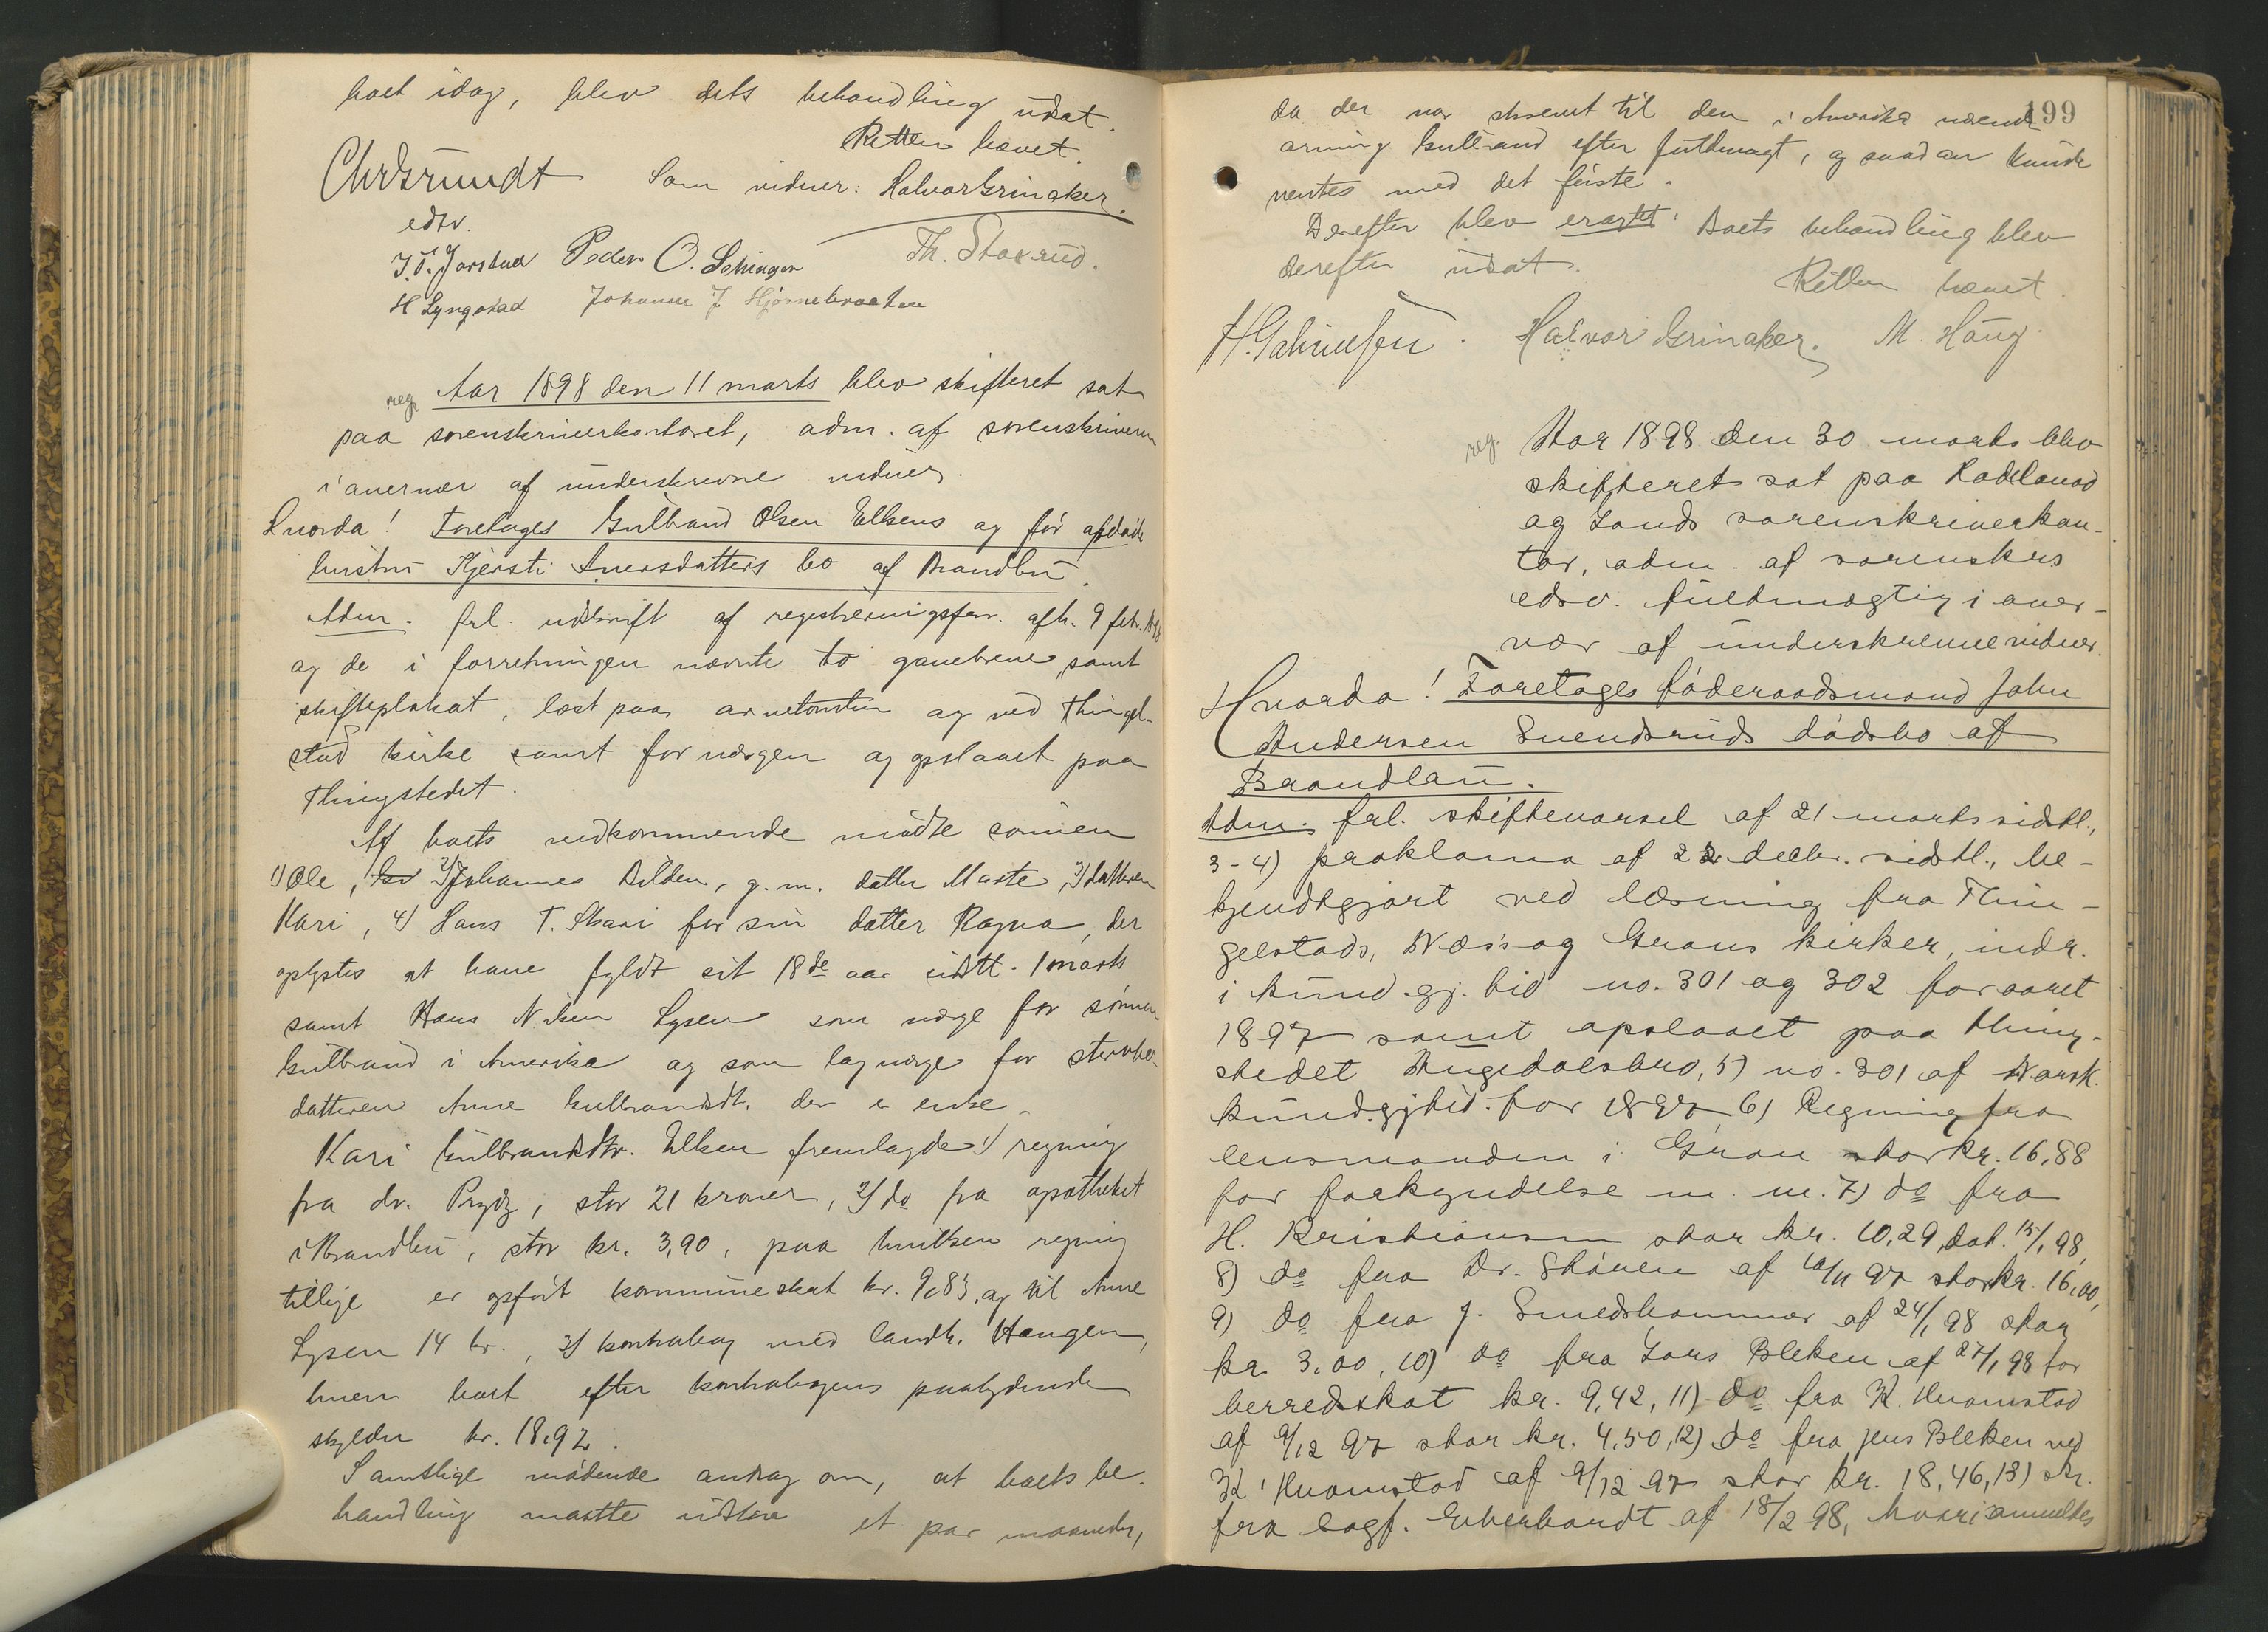 boet idag, blev dets behandling udsat.
Retten hævet.
Som vidner: Halvor Grinaker.
edsv.
J. T. Jorstad Peder O. Th. Staxrud.
H Lyngstad Johannes J.
reg. Aar 1898 den 11 marts blev skifteret sat
paa sorenskriverkontoret, adm. af sorenskriveren
i overvær af underskrevne vidner.
Hvorda! Foretages Gulbrand Olsen Elkens og før afdøde
hustru Kjersti Iversdatters bo af Brandbu.
Adm. frl. udskrift af registreringsforr. afh. 9 feb.
og de i forretningen nævnte to gavebreve, samt
skifteplakat, læst paa arvetomten og ved Thingel-
stad kirke samt for værgen og opslaaet paa
Thingstedet.
Af boets vedkommende mødte sønnen
1) Ole, 2) Johannes Dilden, g. m. datter Marte, 3) datteren
Kari, 4) Hans T. Skari for sin datter Ragna, der
oplystes at have fyldt sit 18de aar sidstl. 1 marts
samt Hans Nilsen Lysen som værge for sønnen
Gulbrand i Amerika og som lagværge for stervbo-
datteren Anne Gulbrandsdt. der er enke.
Kari Gulbrandsdtr. Elken fremlagde 1) regning
fra dr. Prydz, stor 21 kroner, 2) do fra apotheket
i Brandbu, stor kr. 3,90, paa hvilken regning
tillige er opført kommuneskat kr. 9,83, og til Anne
Lysen 14 kr., 3) kontrabog med landh. Haugen,
hvem boet efter kontrabogens paalydende
skylder kr. 18,92.
Samtlige mødende androg om, at boets be-
handling maatte udstaa et par maaneder,
199
da der var skrevet til den i Amerika værende
arving Gulbrand efter fuldmagt, og saadan kunde
ventes med det første.
Derefter blev eragtet: Boets behandling blev
derefter udsat.
Retten hævet.
H. Gabrielsen. Halvor Grinaker. M. Haug.
reg. Aar 1898 den 30 marts blev
skifteret sat paa Hadeland
og Lands sorenskriverkon-
tor, adm. af sorenskrs
edsv. fuldmægtig i over-
vær af underskrevne vidner.
Hvorda! Foretages føderaadsmand John
Andersen Svendsruds dødsbo af
Brandbu.
Adm. frl. skiftevarsel af 21 marts sidstl.,
3-4) proklama af 22 decbr. sidstl., be-
kjendtgjort ved læsning fra Thin-
gelstads, Næs's og Grans kirker, indr.
i kundgj. tid no. 301 og 302 for aaret
1897 samt opslaaet paa thing-
stedet Augedalsbro, 5) no. 301 af Norsk.
kundgjtid. for 1897 6) Regning fra
lensmanden i Gran stor kr. 16,88
for forkyndelse m. m. 7) do fra
H. Kristiansen stor kr. 10,29, dat. 15/1 98,
8) do fra Dr. Skøien af 10/11 97 stor kr. 16,00,
9) do fra J. Smedshammer af 24/1 98 stor
kr. 3,00, 10) do fra Lars Bleken af 27/1 98 for
herredskat kr. 9,42, 11) do fra K. Hvamstad
af 9/12 97 stor kr. 4,50, 12) do fra Jens Bleken ved
K. Hvamstad af 9/12 97 stor kr. 18,46, 13) skr.
fra sagf. af 18/2 98, hvori anmeldes